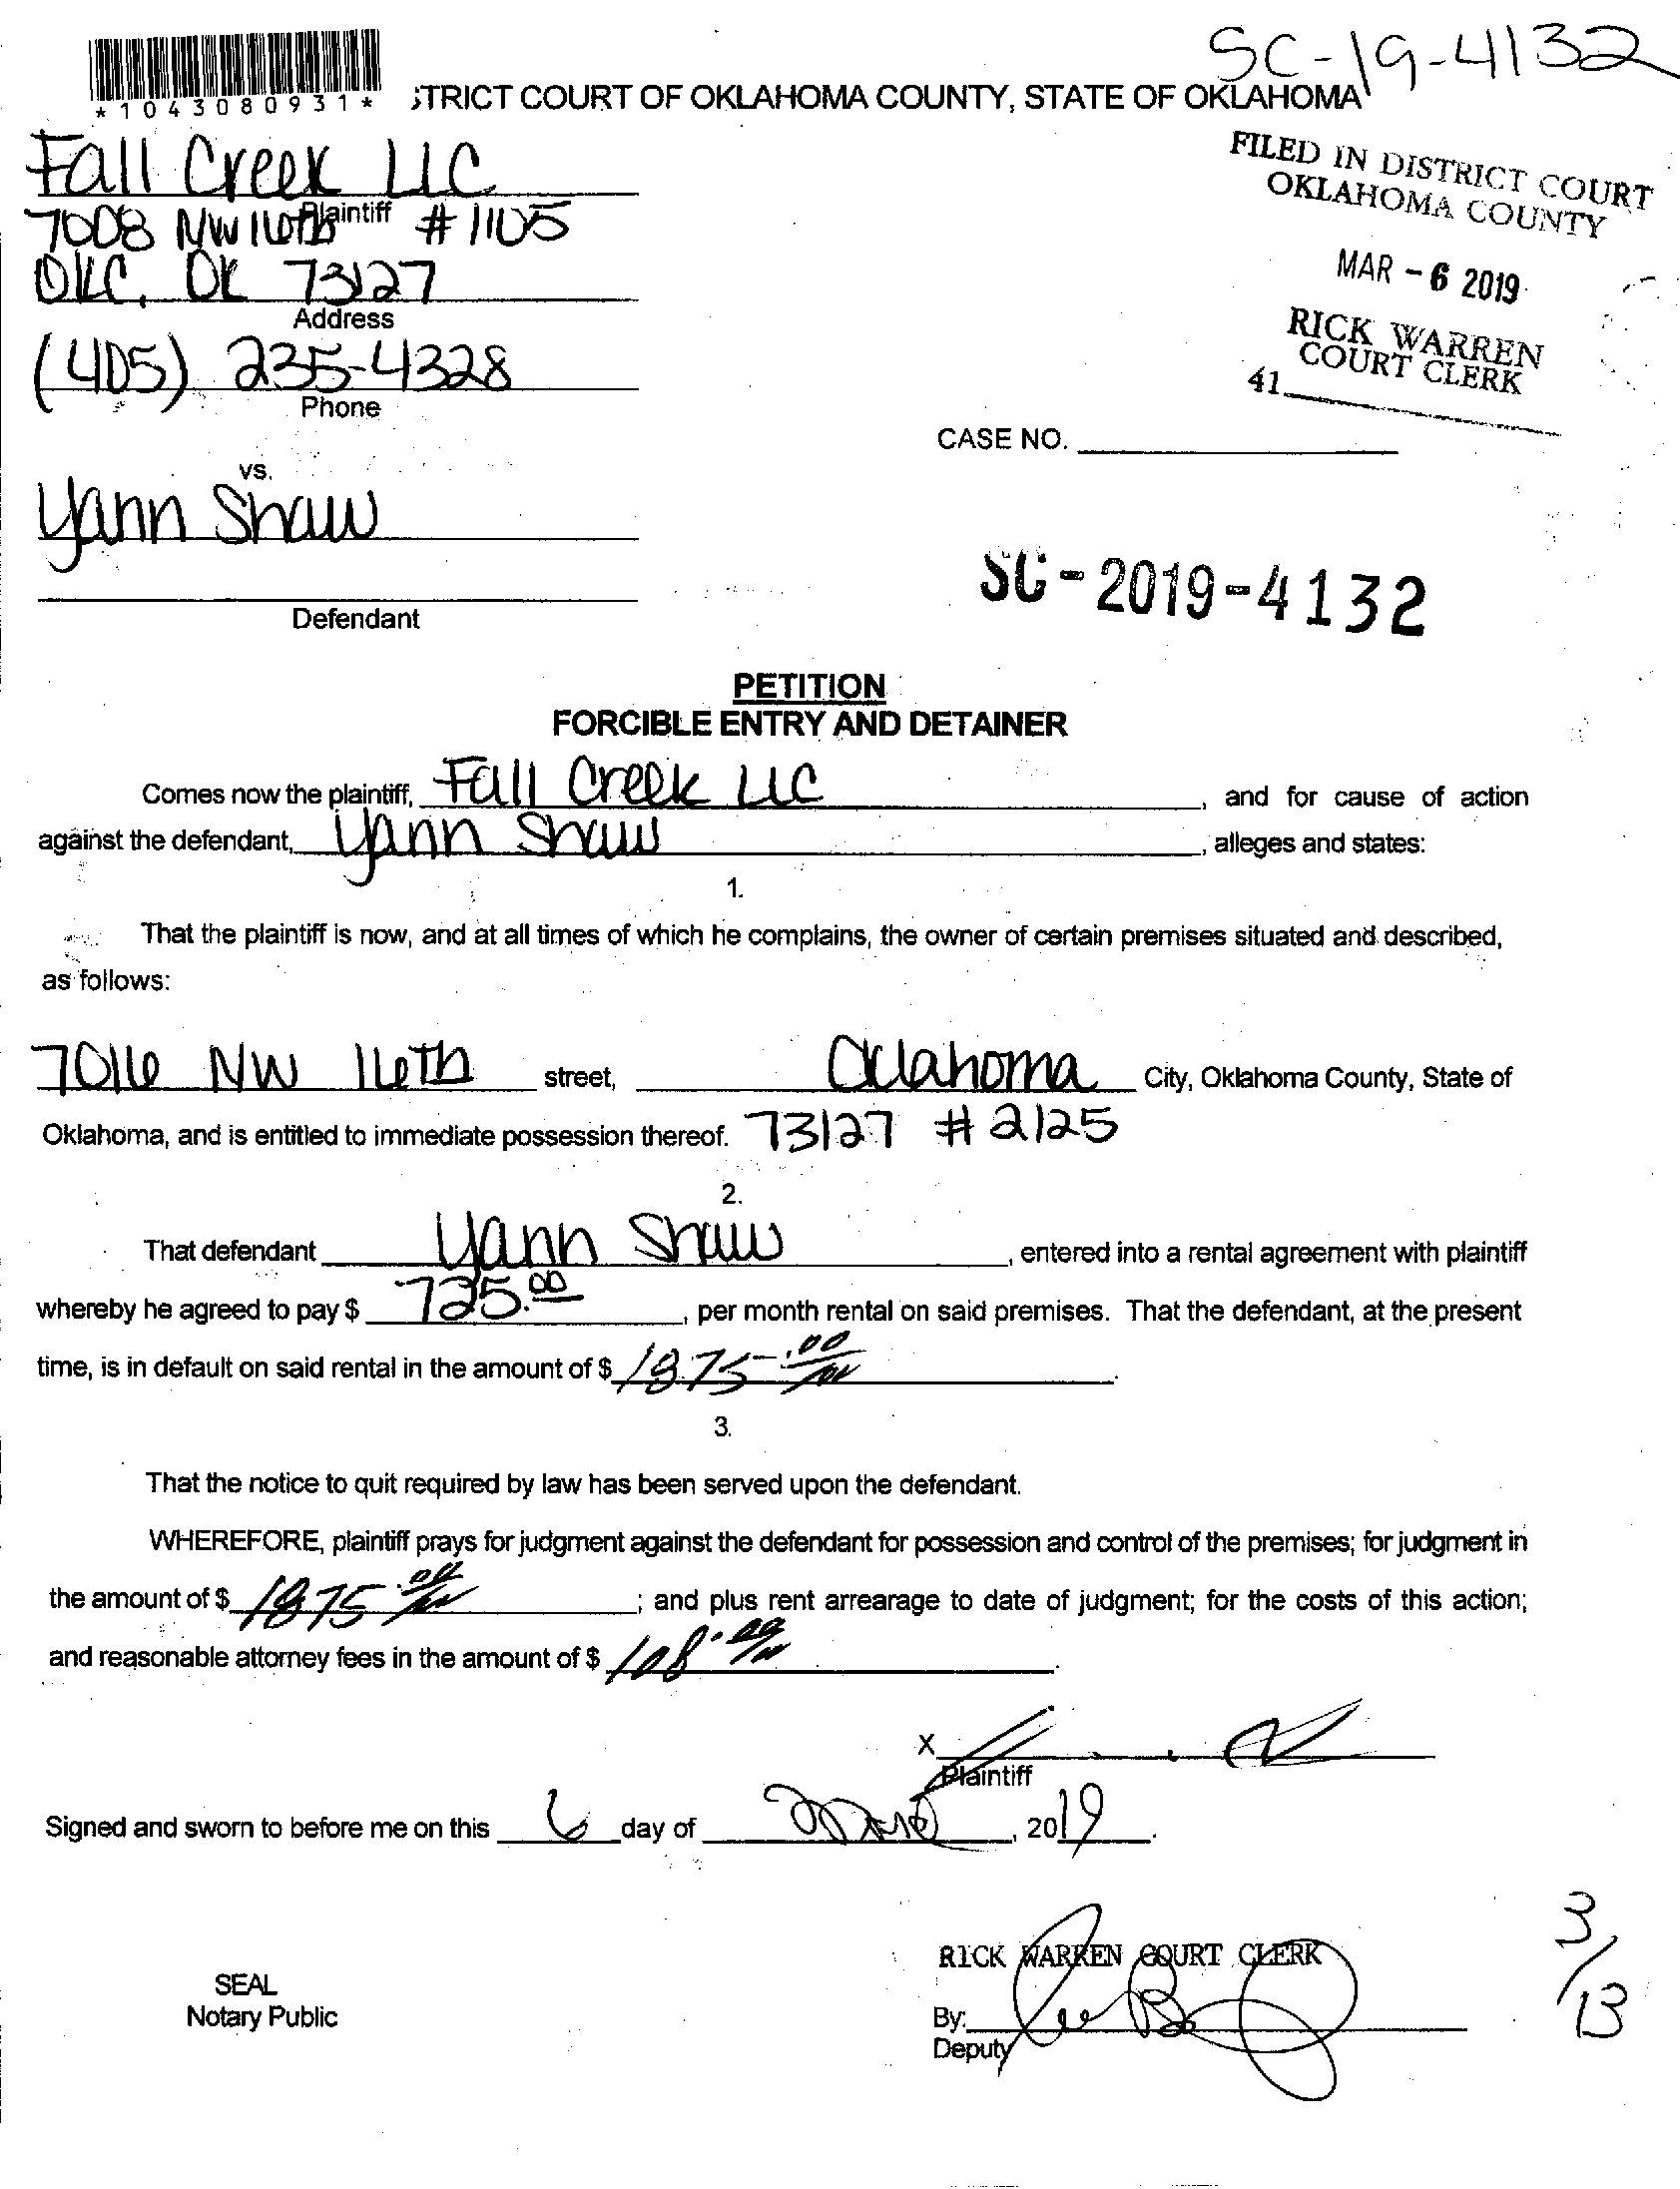 SC-19-4132
*1043080931*
STRICT COURT OF OKLAHOMA COUNTY, STATE OF OKLAHOMA
Fall Creek LLC
Plaintiff
7008 NW 16th #1105
OKC, OK 73127
Address
(405) 235-4328
Phone
FILED IN DISTRICT COURT
OKLAHOMA COUNTY
MAR - 6 2019
RICK WARREN
COURT CLERK
41
CASE NO.
vs.
Yann Shaw
Defendant
SC-2019-4132
PETITION
FORCIBLE ENTRY AND DETAINER
Comes now the plaintiff, Fall Creek LLC, and for cause of action
against the defendant, Yann Shaw, alleges and states:
1.
That the plaintiff is now, and at all times of which he complains, the owner of certain premises situated and described,
as follows:
7016 NW 16th street, Oklahoma City, Oklahoma County, State of
Oklahoma, and is entitled to immediate possession thereof. 73127 #2125
2.
That defendant Yann Shaw, entered into a rental agreement with plaintiff
whereby he agreed to pay $ 725.00, per month rental on said premises. That the defendant, at the present
time, is in default on said rental in the amount of $ 1875.00.
3.
That the notice to quit required by law has been served upon the defendant.
WHEREFORE, plaintiff prays for judgment against the defendant for possession and control of the premises; for judgment in
the amount of $ 1875.00; and plus rent arrearage to date of judgment; for the costs of this action;
and reasonable attorney fees in the amount of $ 108.00.
X
Plaintiff
Signed and sworn to before me on this 6 day of March, 2019.
RICK WARREN COURT CLERK
SEAL
Notary Public
By:
Deputy
3/13